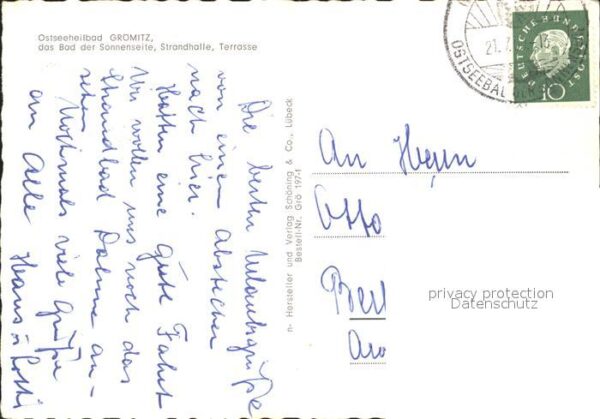 Ostseeheilbad GRÖMITZ,
das Bad der Sonnenseite, Strandhalle, Terrasse
Die besten Urlaubsgrüße
von einem Abstecher
nach hier.
Hatten eine gute Fahrt
Wir wollen uns noch das
Strandbad Dahme an-
sehen
Nochmals viele Grüße
an Alle
Hans u Lotti
Hersteller und Verlag Schöning & Co., Lübeck
Bestell-Nr. Grö 197-t
DEUTSCHE BUNDESPOST
10
21.7.
OSTSEEBAD
An Herrn
Otto
Berl
privacy protection
Datenschutz